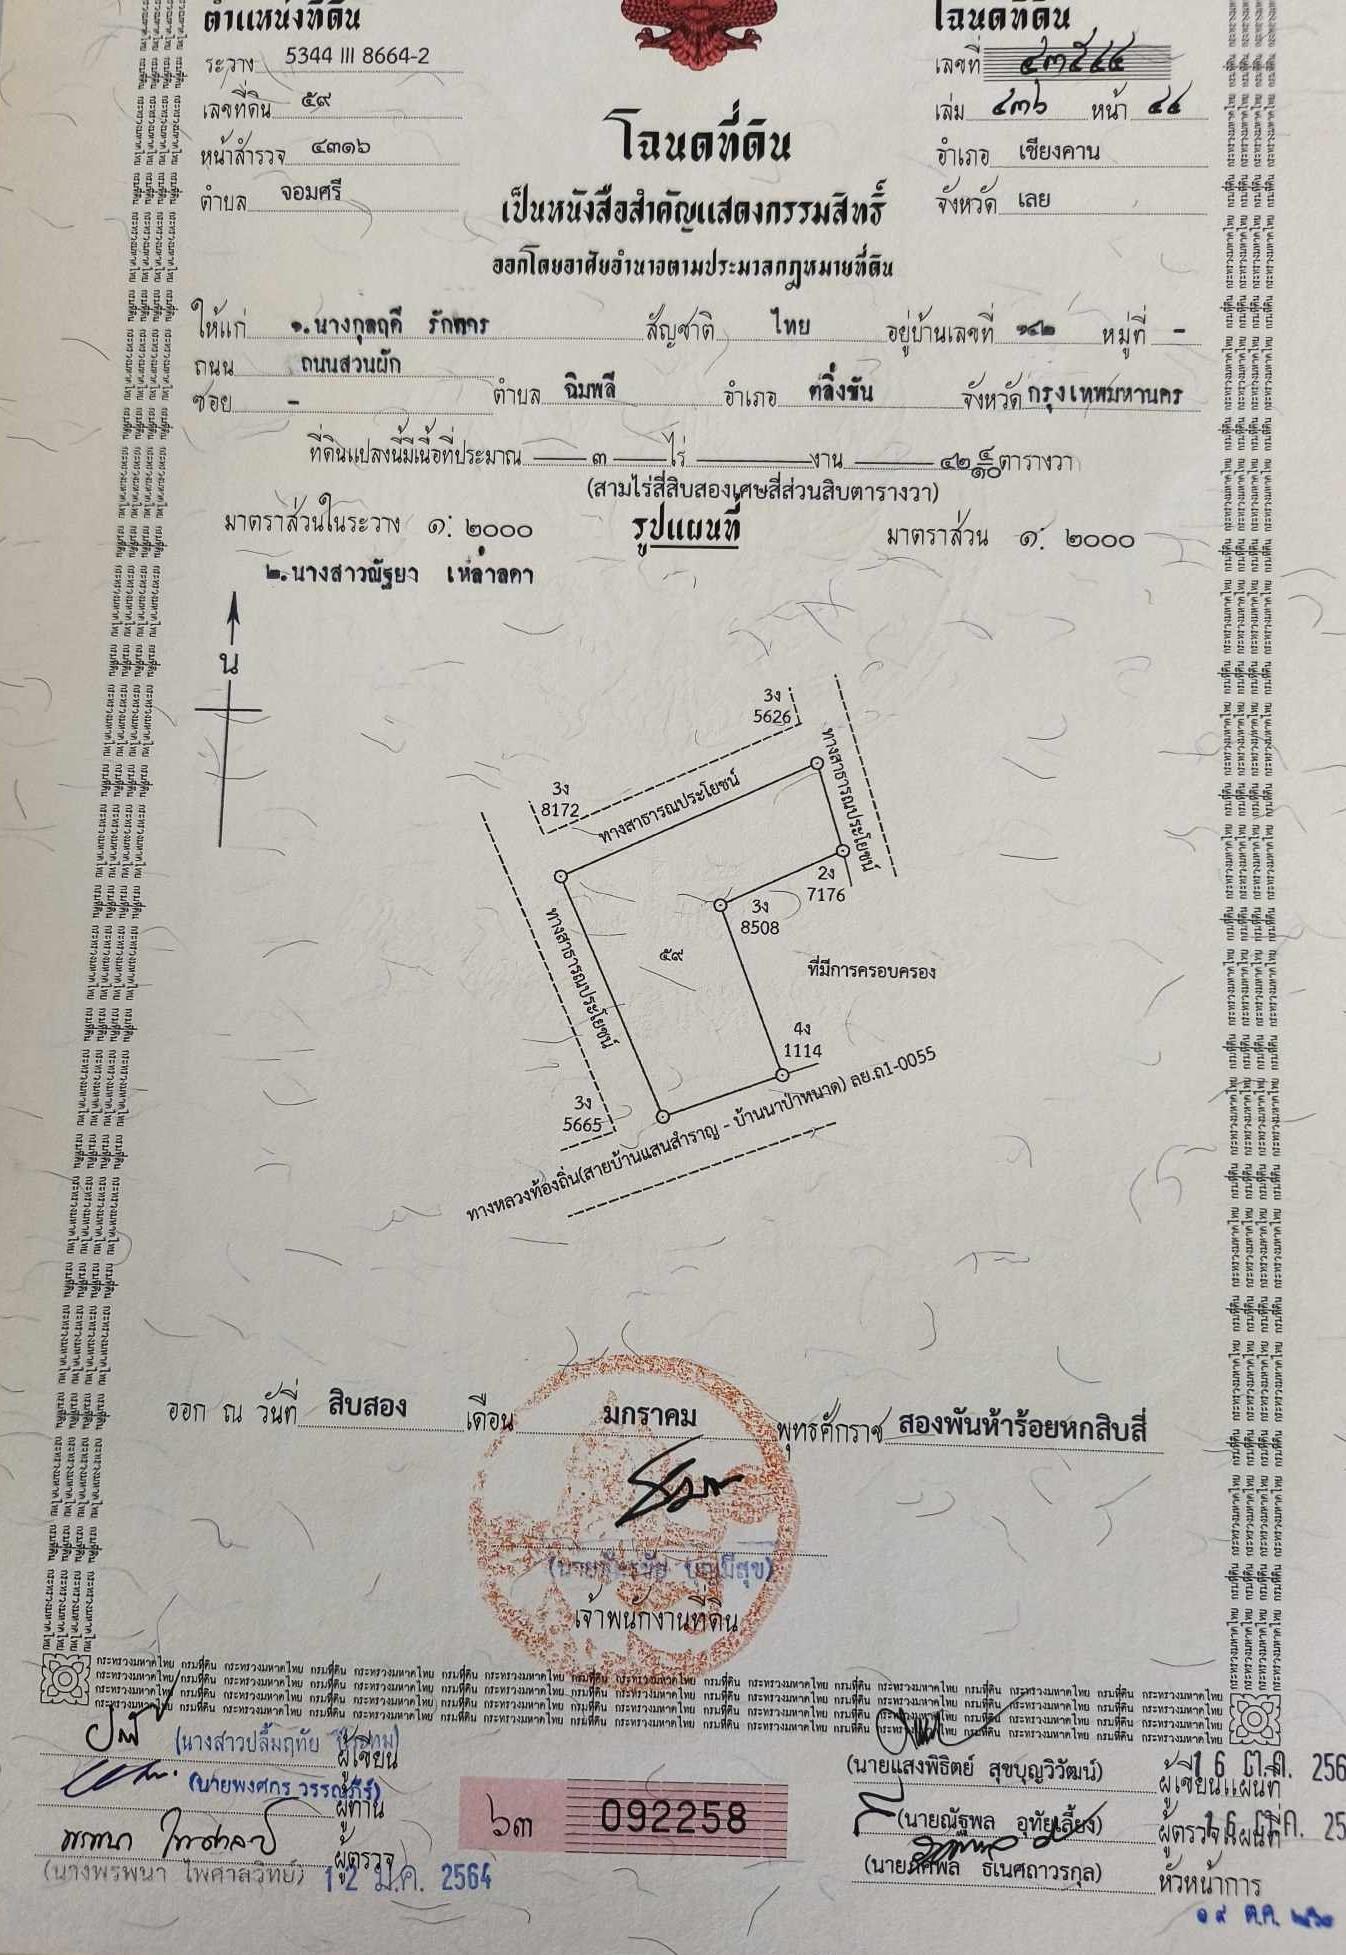 ตำแหน่งที่ดิน
ระวาง 5344 III 8664-2
เลขที่ดิน ๕๙
หน้าสำรวจ ๔๓๑๖
ตำบล จอมศรี
โฉนดที่ดิน
เลขที่ ๔๓๕๔๔
เล่ม ๔๓๖ หน้า ๔๔
อำเภอ เชียงคาน
จังหวัด เลย
โฉนดที่ดิน
เป็นหนังสือสำคัญแสดงกรรมสิทธิ์
ออกโดยอาศัยอำนาจตามประมวลกฎหมายที่ดิน
ให้แก่ ๑.นางกุลฤดี รักการ สัญชาติ ไทย อยู่บ้านเลขที่ ๑๔๒ หมู่ที่ -
ถนน ถนนสวนผัก
ซอย - ตำบล ฉิมพลี อำเภอ ตลิ่งชัน จังหวัด กรุงเทพมหานคร
ที่ดินแปลงนี้มีเนื้อที่ประมาณ ๓ ไร่ งาน ๔๒ ๔/๑๐ ตารางวา
(สามไร่สี่สิบสองเศษสี่ส่วนสิบตารางวา)
มาตราส่วนในระวาง ๑: ๒๐๐๐ รูปแผนที่ มาตราส่วน ๑: ๒๐๐๐
๒.นางสาวณัฐยา เหล่าลดา
น
3ง
5626
3ง
8172
ทางสาธารณประโยชน์
ทางสาธารณประโยชน์
2ง
7176
3ง
8508
ทางสาธารณประโยชน์
๕๙
ที่มีการครอบครอง
4ง
1114
3ง
5665
ทางหลวงท้องถิ่น(สายบ้านแสนสำราญ - บ้านนาป่าหนาด) ลย.ถ1-0055
ออก ณ วันที่ สิบสอง เดือน มกราคม พุทธศักราช สองพันห้าร้อยหกสิบสี่
เจ้าพนักงานที่ดิน
กระทรวงมหาดไทย กรมที่ดิน กระทรวงมหาดไทย กรมที่ดิน กระทรวงมหาดไทย กรมที่ดิน กระทรวงมหาดไทย กรมที่ดิน
(นางสาวปลื้มฤทัย
ผู้เขียน
(นายพงศกร วรรณภีร์)
ผู้ทาน
ผู้ตรวจ
(นางพรพนา ไพศาลวิทย์) 12 ม.ค. 2564
๖๓ 092258
(นายแสงพิธิตย์ สุขบุญวิวัฒน์) ผู้เขียนแผนที่ 16 ต.ค. 256
(นายณัฐพล อุทัยเลี้ยง) ผู้ตรวจแผนที่ 16 ต.ค. 25
ธเนศถาวรกุล) หัวหน้าการ
๑๙ ต.ค. ๒๕๖๓